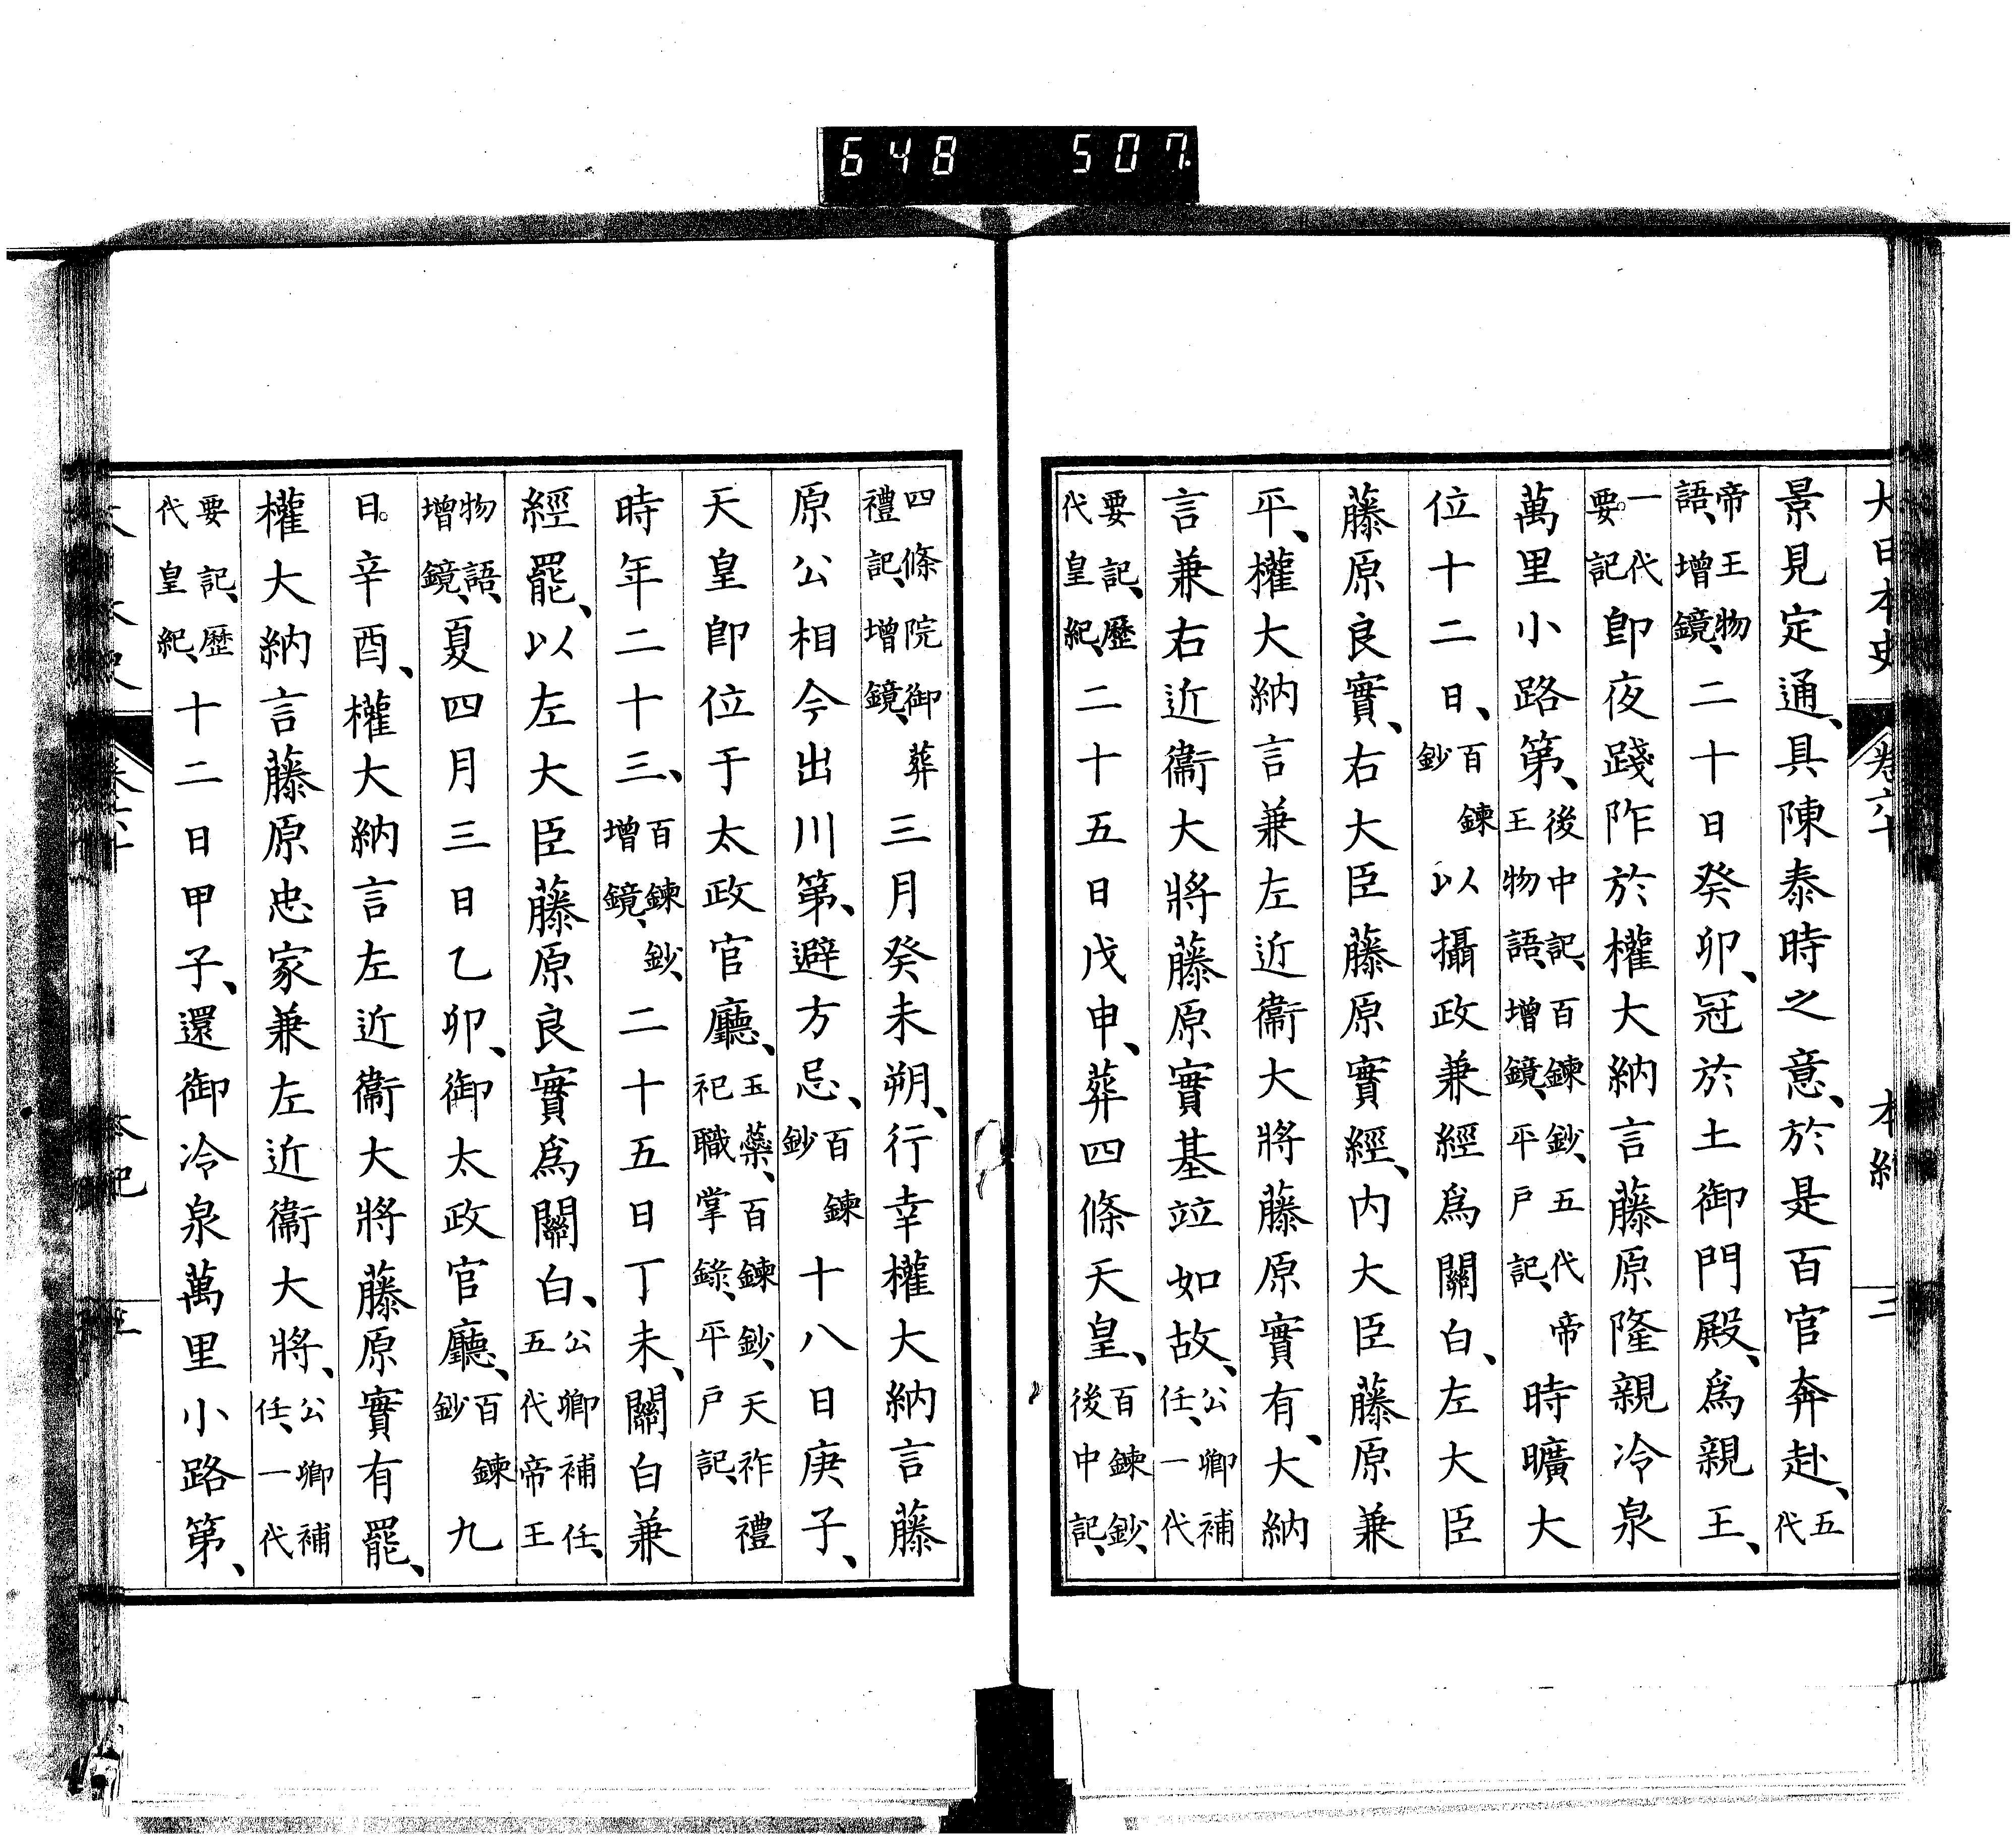 648 507
大日本史 卷六十 本紀 三
景見定通、具陳泰時之意、於是百官奔赴、五代
帝王物語、增鏡、二十日癸卯、冠於土御門殿、爲親王、
一代要記。卽夜踐阼於權大納言藤原隆親冷泉
萬里小路第、後中記、百鍊鈔、五代帝王物語、增鏡、平戶記、時曠大
位十二日、百鍊鈔以攝政兼經爲關白、左大臣
藤原良實、右大臣藤原實經、内大臣藤原兼
平、權大納言兼左近衞大將藤原實有、大納
言兼右近衞大將藤原實基竝如故、公卿補任、一代
要記、歷代皇紀、二十五日戊申、葬四條天皇、百鍊鈔、後中記、
四條院御葬禮記、增鏡、三月癸未朔、行幸權大納言藤
原公相今出川第、避方忌、百鍊鈔十八日庚子、
天皇卽位于太政官廳、玉蘂、百鍊鈔、天祚禮祀職掌錄、平戶記、
時年二十三、百鍊鈔、增鏡、二十五日丁未、關白兼
經罷、以左大臣藤原良實爲關白、公卿補任、五代帝王
物語、增鏡、夏四月三日乙卯、御太政官廳、百鍊鈔九
日。辛酉、權大納言左近衞大將藤原實有罷、
權大納言藤原忠家兼左近衞大將、公卿補任、一代
要記、歷代皇紀、十二日甲子、還御冷泉萬里小路第、